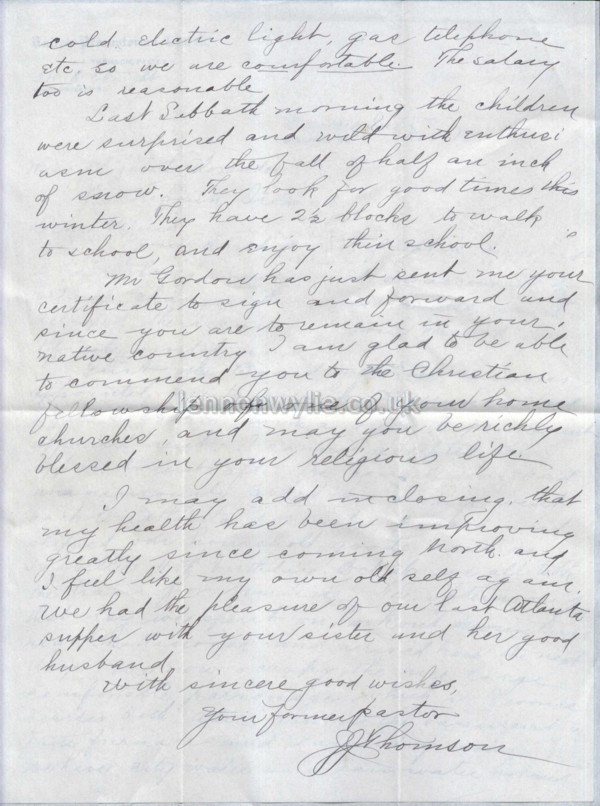 cold electric light, gas telephone
etc, so we are comfortable. The salary
too is reasonable
Last Sabbath morning the children
were surprised and wild with enthusi
asm over the fall of half an inch
of snow. They look for good times this
winter. They have 2½ blocks to walk
to school, and enjoy their school.
Mr Gordon has just sent me your
certificate to sign and forward and
since you are to remain in your
native country I am glad to be able
to commend you to the Christian
fellowship of your home
churches, and may you be richly
blessed in your religious life.
I may add in closing, that
my health has been improving
greatly since coming North and
I feel like my own old self again.
We had the pleasure of our last Atlanta
supper with your sister and her good
husband.
With sincere good wishes,
Your former pastor
J Thomson
lennonwylie.co.uk